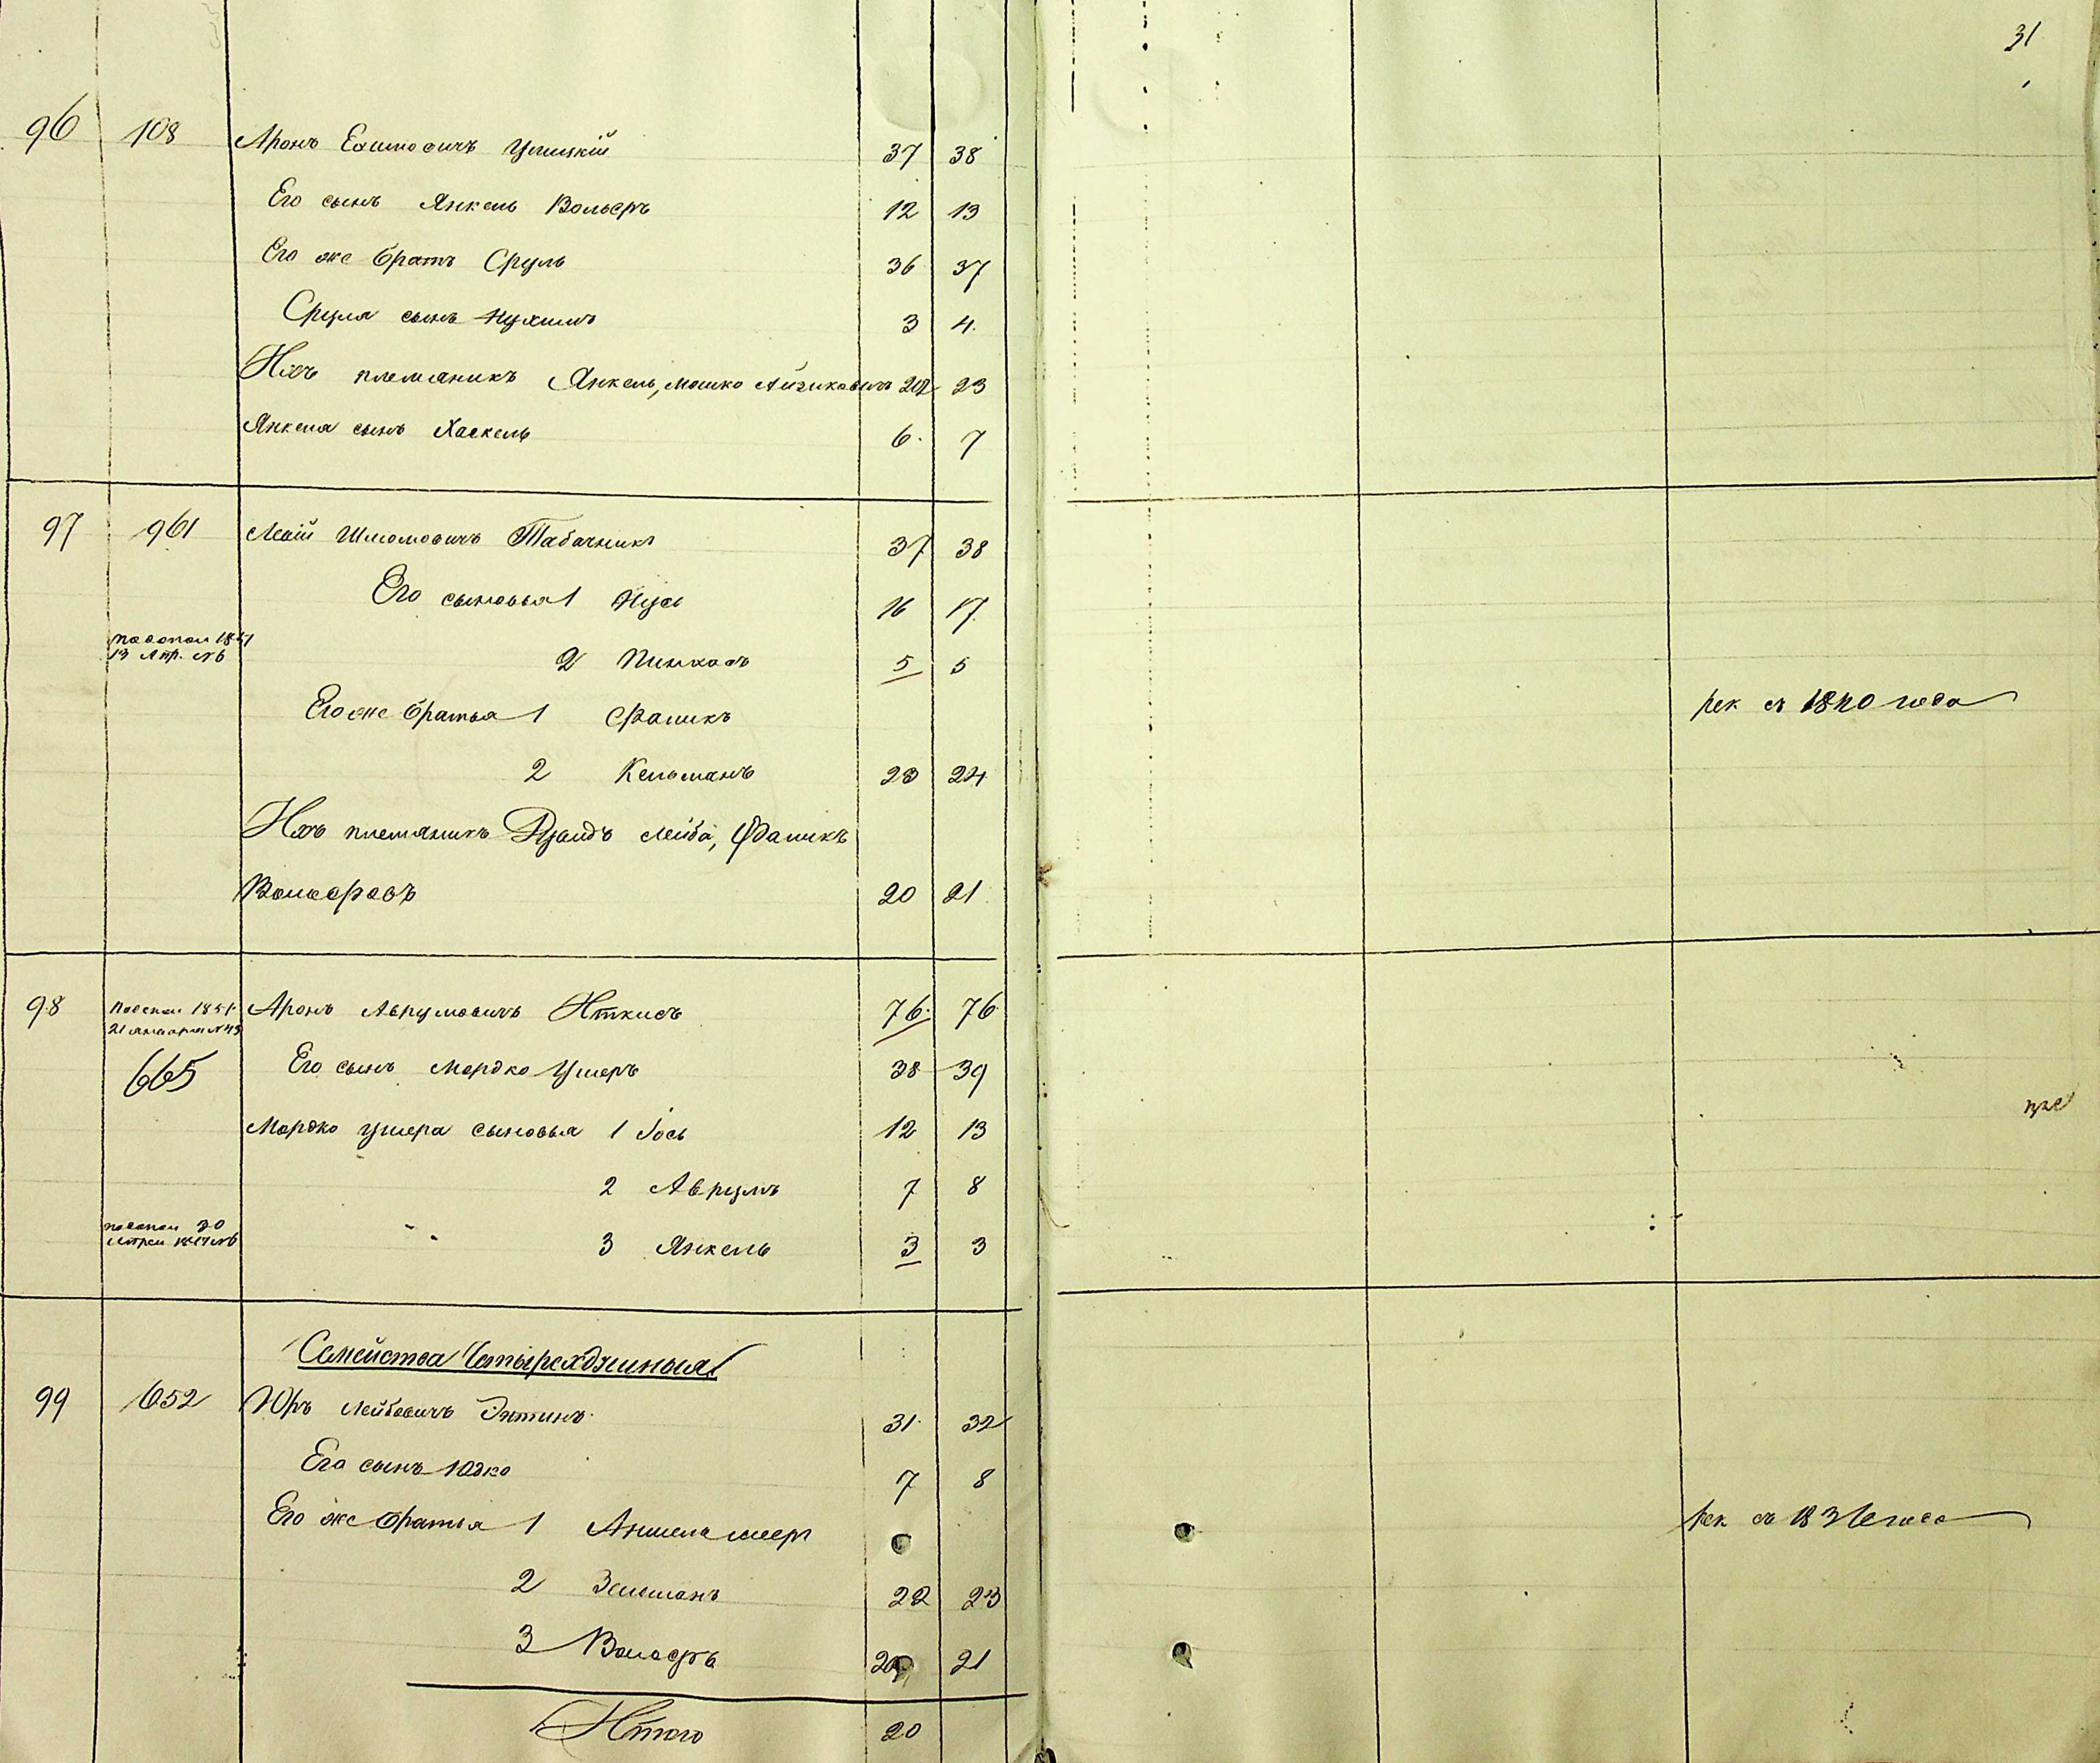 31
96 108 Аронъ Ушицкій 37 38
Его сынъ Янкель Вольфъ 12 13
Его же братъ Сруль 36 37
Сруля сынъ Нухимъ 3 4
Ихъ племяникъ Янкель, Мошко Айзиковичъ 22 23
Янкеля сынъ Хаскель 6 7
97 961 Шмомовичъ Табачникъ 37 38
Его сыновья 1 Нусь 16 17
13 Апр. №6 2 Пинхасъ 5 5
Его же братья 1 Фаликъ рек съ 1840 года
2 Кельманъ 23 24
Ихъ племяникъ Дувидъ Лейба, Фаликъ
Вольфовъ 20 21
98 Аронъ Аврумовичъ Иткисъ 76 76
21 января №43
665 Его сынъ Мордко Ушеръ 38 39
Мордко Ушера сыновья 1 Іось 12 13
2 Аврумъ 7 8
3 Янкель 3 3
Семейства Четырехдушныя
99 652 Юръ Лейбовичъ Энтинъ 31 32
Его сынъ Юдко 7 8
Его же братья 1 рек съ 1836 года
2 Зельманъ 22 23
3 Вольфъ 20 21
Итого 20